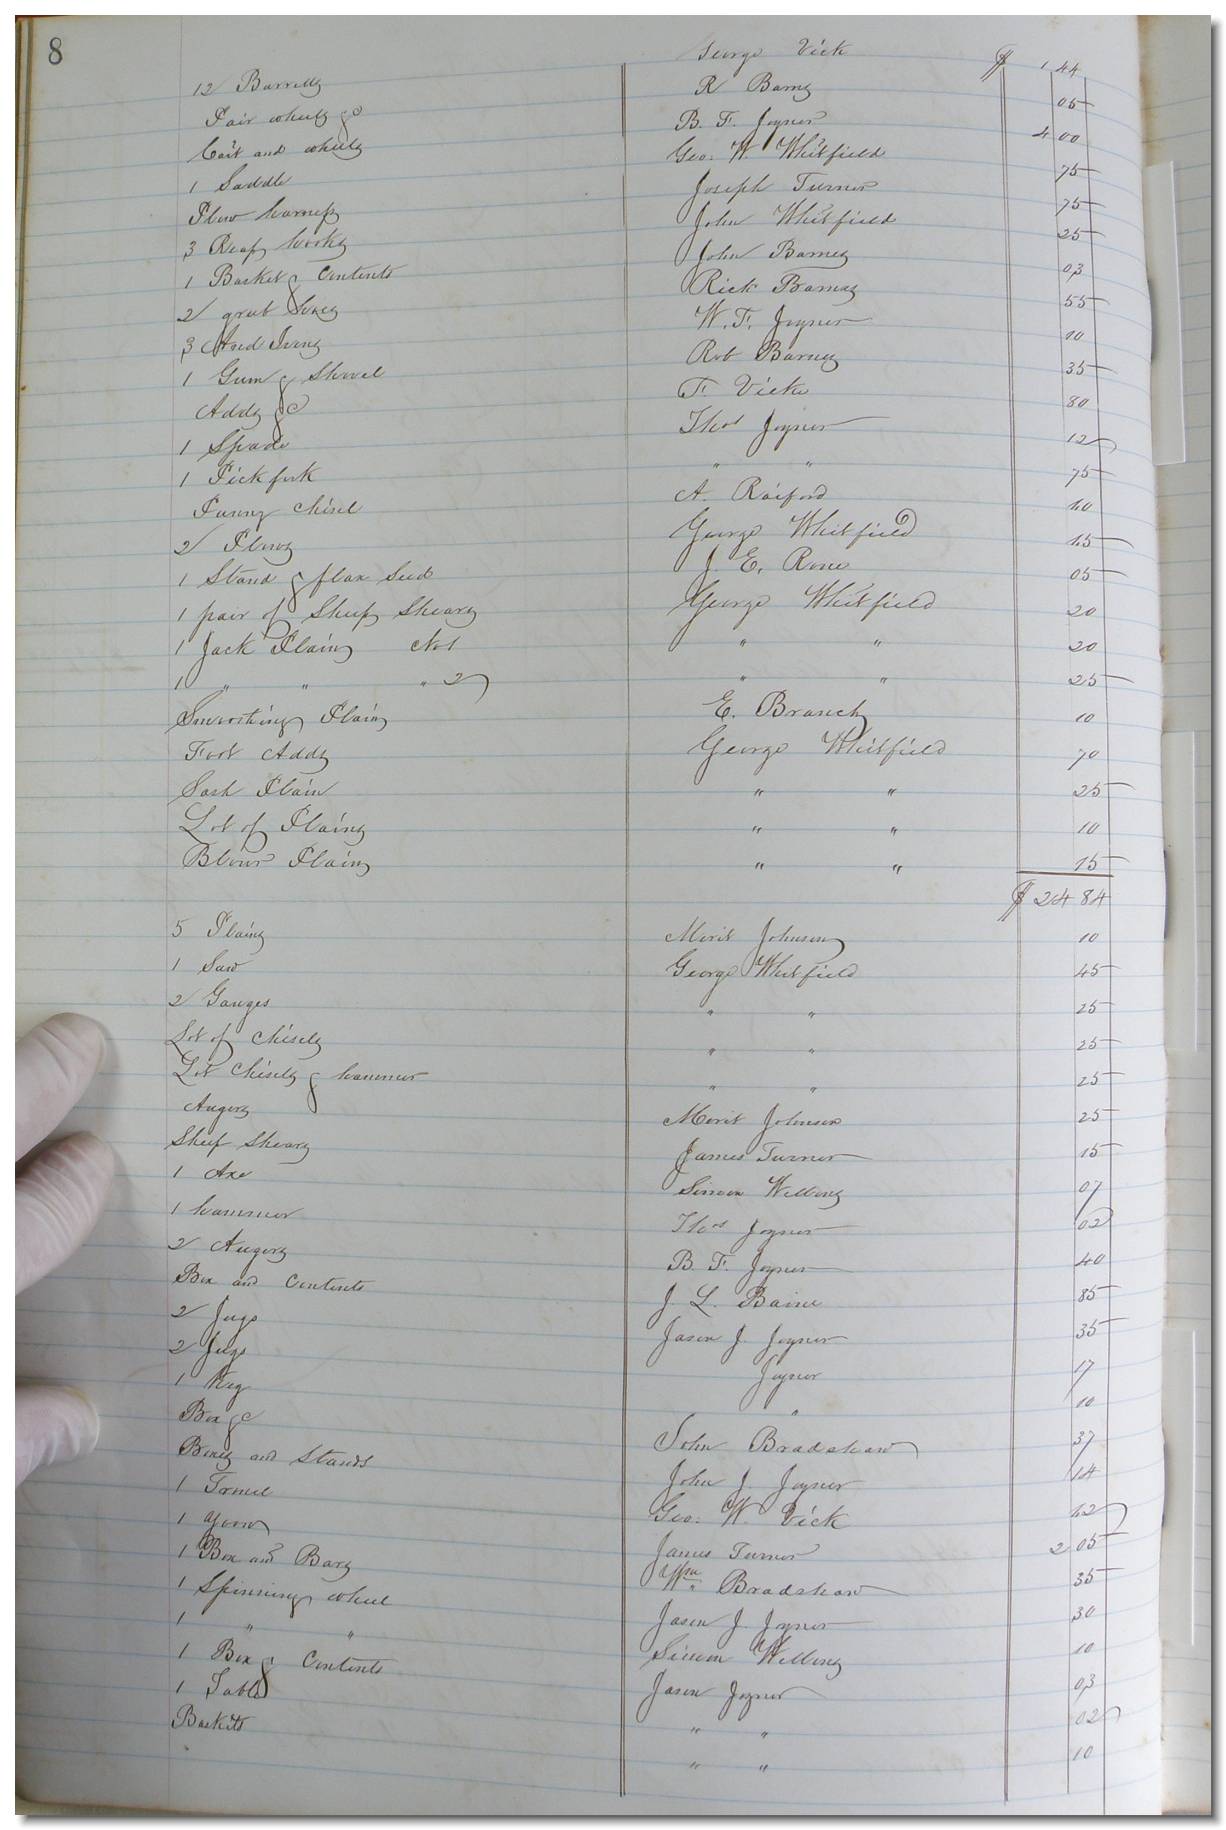 8
12 Barrells George Vick $ 1 44
Pair wheels &c R Barns 05
Cart and wheels B. F. Joyner 4 00
1 Saddle Geo: W. Whitfield 75
Plow harness Joseph Turner 75
3 Reap hooks John Whitfield 25
1 Basket & Contents John Barnes 03
2 grub hoes Rick Barnes 55
3 And Irons W. F. Joyner 10
1 Gum & Shovel Rob Barnes 35
Adds &c F. Vick 80
1 Spade Thos Joyner 12
1 Pickfork " " 75
Chisel A. Raiford 10
2 Plows George Whitfield 15
1 Stand & flax Seed J. E. Rose 05
1 pair of Sheep Shears George Whitfield 20
1 Jack Plain No 1 " " 20
1 " " " 2 " " 25
Smoothing Plain E. Branch 10
Foot Adds George Whitfield 70
Sash Plain " " 25
Lot of Plains " " 10
Plains " " 15
$ 24 84
5 Plains Merit Johnson 10
1 Saw George Whitfield 45
2 Gauges " " 25
Lot of Chisels " " 25
Lot Chisels & hammer " " 25
Augers Merit Johnson 25
Sheep Shears James Turner 15
1 Axe Simon 07
1 hammer Thos Joyner 02
2 Augers B. F. Joyner 40
Box and Contents J. L. Baine 85
2 Jugs Jason J. Joyner 35
2 Jugs Joyner 17
1 Keg " 10
Box &c John Bradshaw 37
Boxes and Stands John J. Joyner 14
1 Geo: W. Vick 12
1 James Turner 2 05
1 Box and Bars Wm " Bradshaw 35
1 Spinning wheel Jason J. Joyner 30
1 " " Simon 10
1 Box & Contents Jason Joyner 03
1 Table " " 02
Baskets " " 10